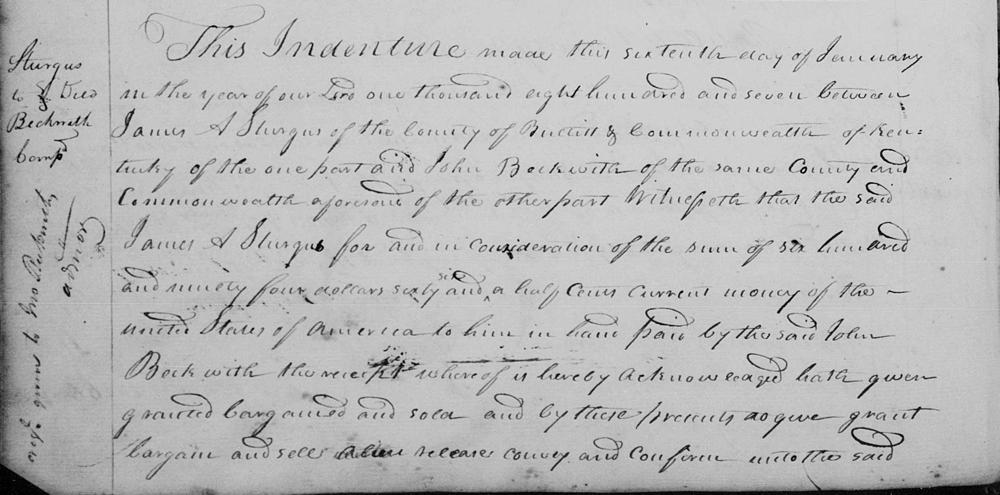 Sturgus
to Deed
Beckwith
Comp
This Indenture made this sixtenth day of January
in the year of our Lord one thousand eight hundred and seven between
James A Sturgus of the County of Bullitt & Commonwealth of Ken=
tucky of the one part and John Beckwith of the same County and
Commonwealth aforesaid of the other part Witnesseth that the said
James A Sturgus for and in consideration of the sum of six hundred
and ninety four dollars sixty six and a half Cents Current money of the
united States of America to him in hand paid by the said John
Beckwith the receipt whereof is hereby acknowledged hath given
granted bargained and sold and by these presents do give grant
bargain and sell alien release convey and Confirm unto the said
given to Jno Beckwith